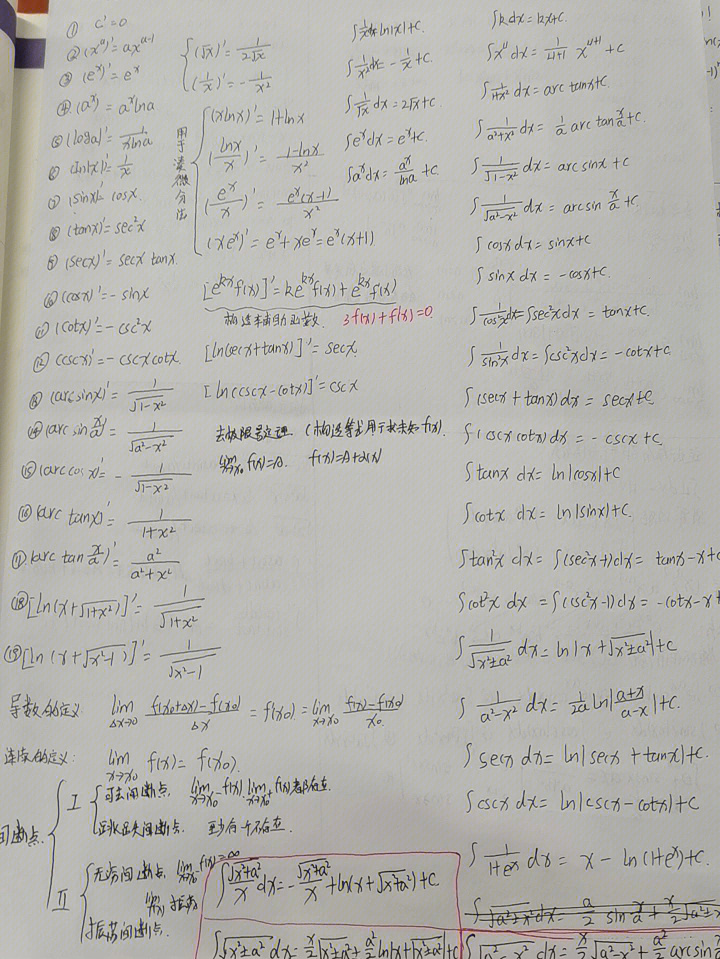 ① C'=0
② (x^a)'=ax^{a-1}
③ (e^x)'=e^x
④ (a^x)'=a^x lna
⑤ (loga)'=\frac{1}{xlna}
⑥ (ln|x|)'=\frac{1}{x}
⑦ (sinx)'=cosx.
⑧ (tanx)'=sec²x
⑨ (secx)'=secx tanx.
⑩ (cosx)'=-sinx
⑪ (cotx)'=-csc²x
⑫ (cscx)'=-cscxcotx.
⑬ (arcsinx)'=\frac{1}{\sqrt{1-x²}}
⑭ (arcsin\frac{x}{a})'=\frac{1}{\sqrt{a²-x²}}
⑮ (arccosx)'=-\frac{1}{\sqrt{1-x²}}
⑯ (arctanx)'=\frac{1}{1+x²}
⑰ (arctan\frac{x}{a})'=\frac{a²}{a²+x²}
⑱ [ln(x+\sqrt{1+x²})]'=\frac{1}{\sqrt{1+x²}}
⑲ [ln(x+\sqrt{x²-1})]'=\frac{1}{\sqrt{x²-1}}
(\sqrt{x})'=\frac{1}{2\sqrt{x}}
(\frac{1}{x})'=-\frac{1}{x²}
用于凑微分法
(xlnx)'=1+lnx
(\frac{lnx}{x})'=\frac{1-lnx}{x²}
(\frac{e^x}{x})'=\frac{e^x(x-1)}{x²}
(xe^x)'=e^x+xe^x=e^x(x+1)
[e^{kx}f(x)]'=ke^{kx}f(x)+e^{kx}f(x)
构造辅助函数. 3f(x)+f(x)=0.
[ln(secx+tanx)]'=secx
[ln(cscx-cotx)]'=cscx
去极限号定理 (构造等式用于求未知f(x).
lim_{x→x₀} f(x)=A. f(x)=A+α(x)
∫\frac{1}{x}dx=ln|x|+C.
∫\frac{1}{x²}dx=-\frac{1}{x}+C.
∫\frac{1}{\sqrt{x}}dx=2\sqrt{x}+C.
∫e^xdx=e^x+C.
∫a^xdx=\frac{a^x}{lna}+C.
∫kdx=kx+C.
∫x^u dx=\frac{1}{u+1}x^{u+1}+C
∫\frac{1}{1+x²}dx=arctanx+C.
∫\frac{1}{a²+x²}dx=\frac{1}{a}arctan\frac{x}{a}+C.
∫\frac{1}{\sqrt{1-x²}}dx=arcsinx+C
∫\frac{1}{\sqrt{a²-x²}}dx=arcsin\frac{x}{a}+C.
∫cosxdx=sinx+C
∫sinxdx=-cosx+C.
∫\frac{1}{cos²x}dx=∫sec²xdx=tanx+C.
∫\frac{1}{sin²x}dx=∫csc²xdx=-cotx+C
∫(secx+tanx)dx=secx+C
∫(cscxcotx)dx=-cscx+C.
∫tanxdx=ln|cosx|+C
∫cotxdx=ln|sinx|+C.
∫tan²xdx=∫(sec²x+)dx=tanx-x+C
∫cot²xdx=∫(csc²x-1)dx=-cotx-x+
∫\frac{1}{\sqrt{x²±a²}}dx=ln|x+\sqrt{x²±a²}|+C
∫\frac{1}{a²-x²}dx=\frac{1}{2a}ln|\frac{a+x}{a-x}|+C.
∫secxdx=ln|secx+tanx|+C.
∫cscxdx=ln|cscx-cotx|+C
∫\frac{1}{1+e^x}dx=x-ln(1+e^x)+C.
∫\sqrt{a²±x²}dx=\frac{a}{2}sin\frac{x}{a}+\frac{x}{2}\sqrt{a²±x
∫\sqrt{a²-x²}dx=\frac{x}{2}\sqrt{a²-x²}+\frac{a²}{2}arcsin
导数的定义 lim_{Δx→0}\frac{f(x₀+Δx)-f(x₀)}{Δx}=f(x₀)=lim_{x→x₀}\frac{f(x)-f(x₀)}{x₀}
连续的定义: lim_{x→x₀}f(x)=f(x₀).
间断点.
I
可去间断点, lim_{x→x₀^-}f(x) lim_{x→x₀^+}f(x)都存在.
间断点. 至少有一个不存在.
II
无穷间断点, lim_{x→x₀}f(x)=∞
振荡间断点.
∫\frac{\sqrt{x²+a²}}{x}dx=-\frac{\sqrt{x²+a²}}{x}+ln(x+\sqrt{x²+a²})+C.
∫\sqrt{x²±a²}dx=\frac{x}{2}\sqrt{x²±a²}+\frac{a²}{2}ln|x+\sqrt{x²±a²}|+C